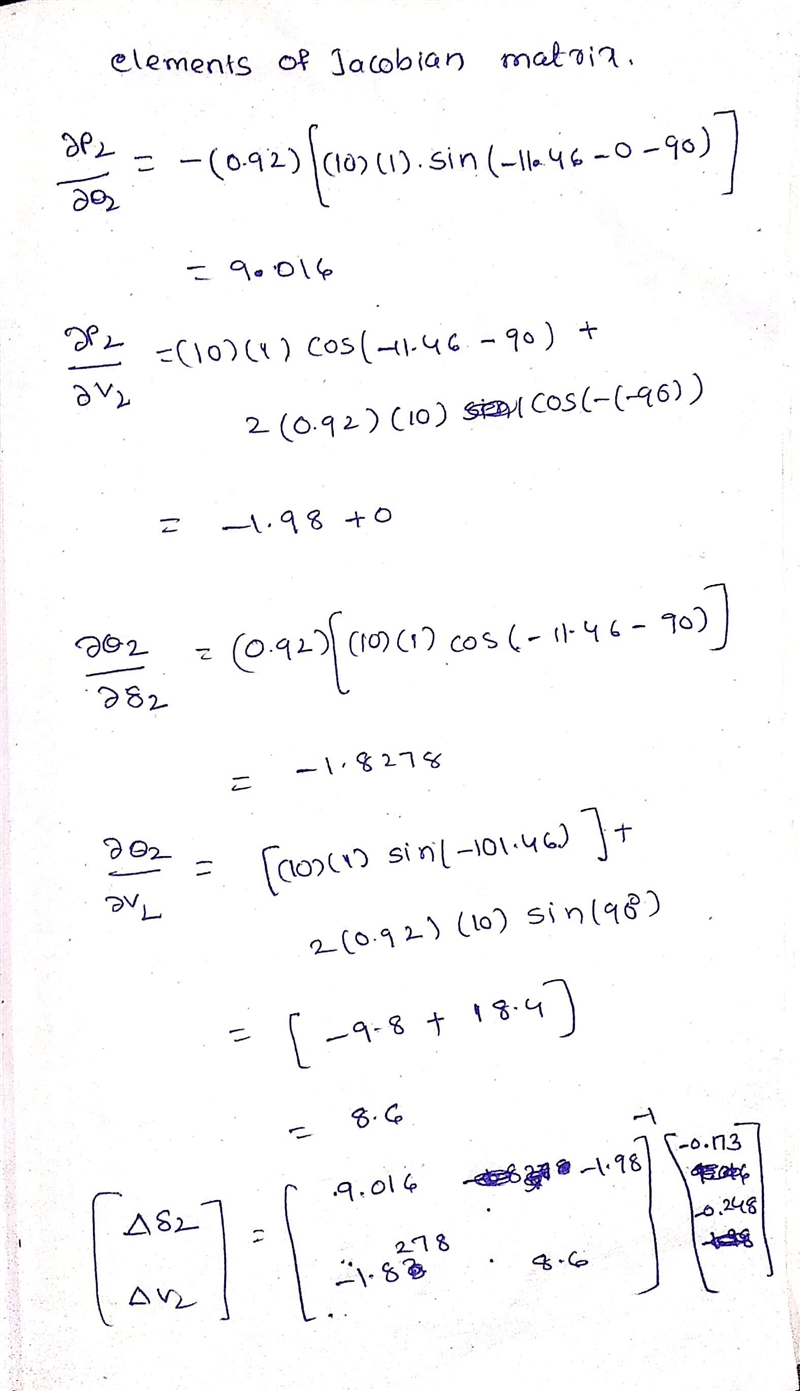 elements of Jacobian matrix.
∂P2/∂θ2 = -(0.92)[(10)(1).sin(-11.46-0-90)]
= 9.016
∂P2/∂V2 =(10)(1) cos(-11.46-90) +
2(0.92)(10) cos(-(-90))
= -1.98 +0
∂Q2/∂δ2 = (0.92)[(10)(1) cos(-11.46-90)]
= -1.8278
∂Q2/∂V2 = [(10)(1) sin(-101.46)]+
2(0.92)(10) sin(90°)
= [-9.8 + 18.4]
= 8.6
-1
9.016 -1.98 -0.173
Δδ2 = -0.248
278
ΔV2 -1.8 8.6